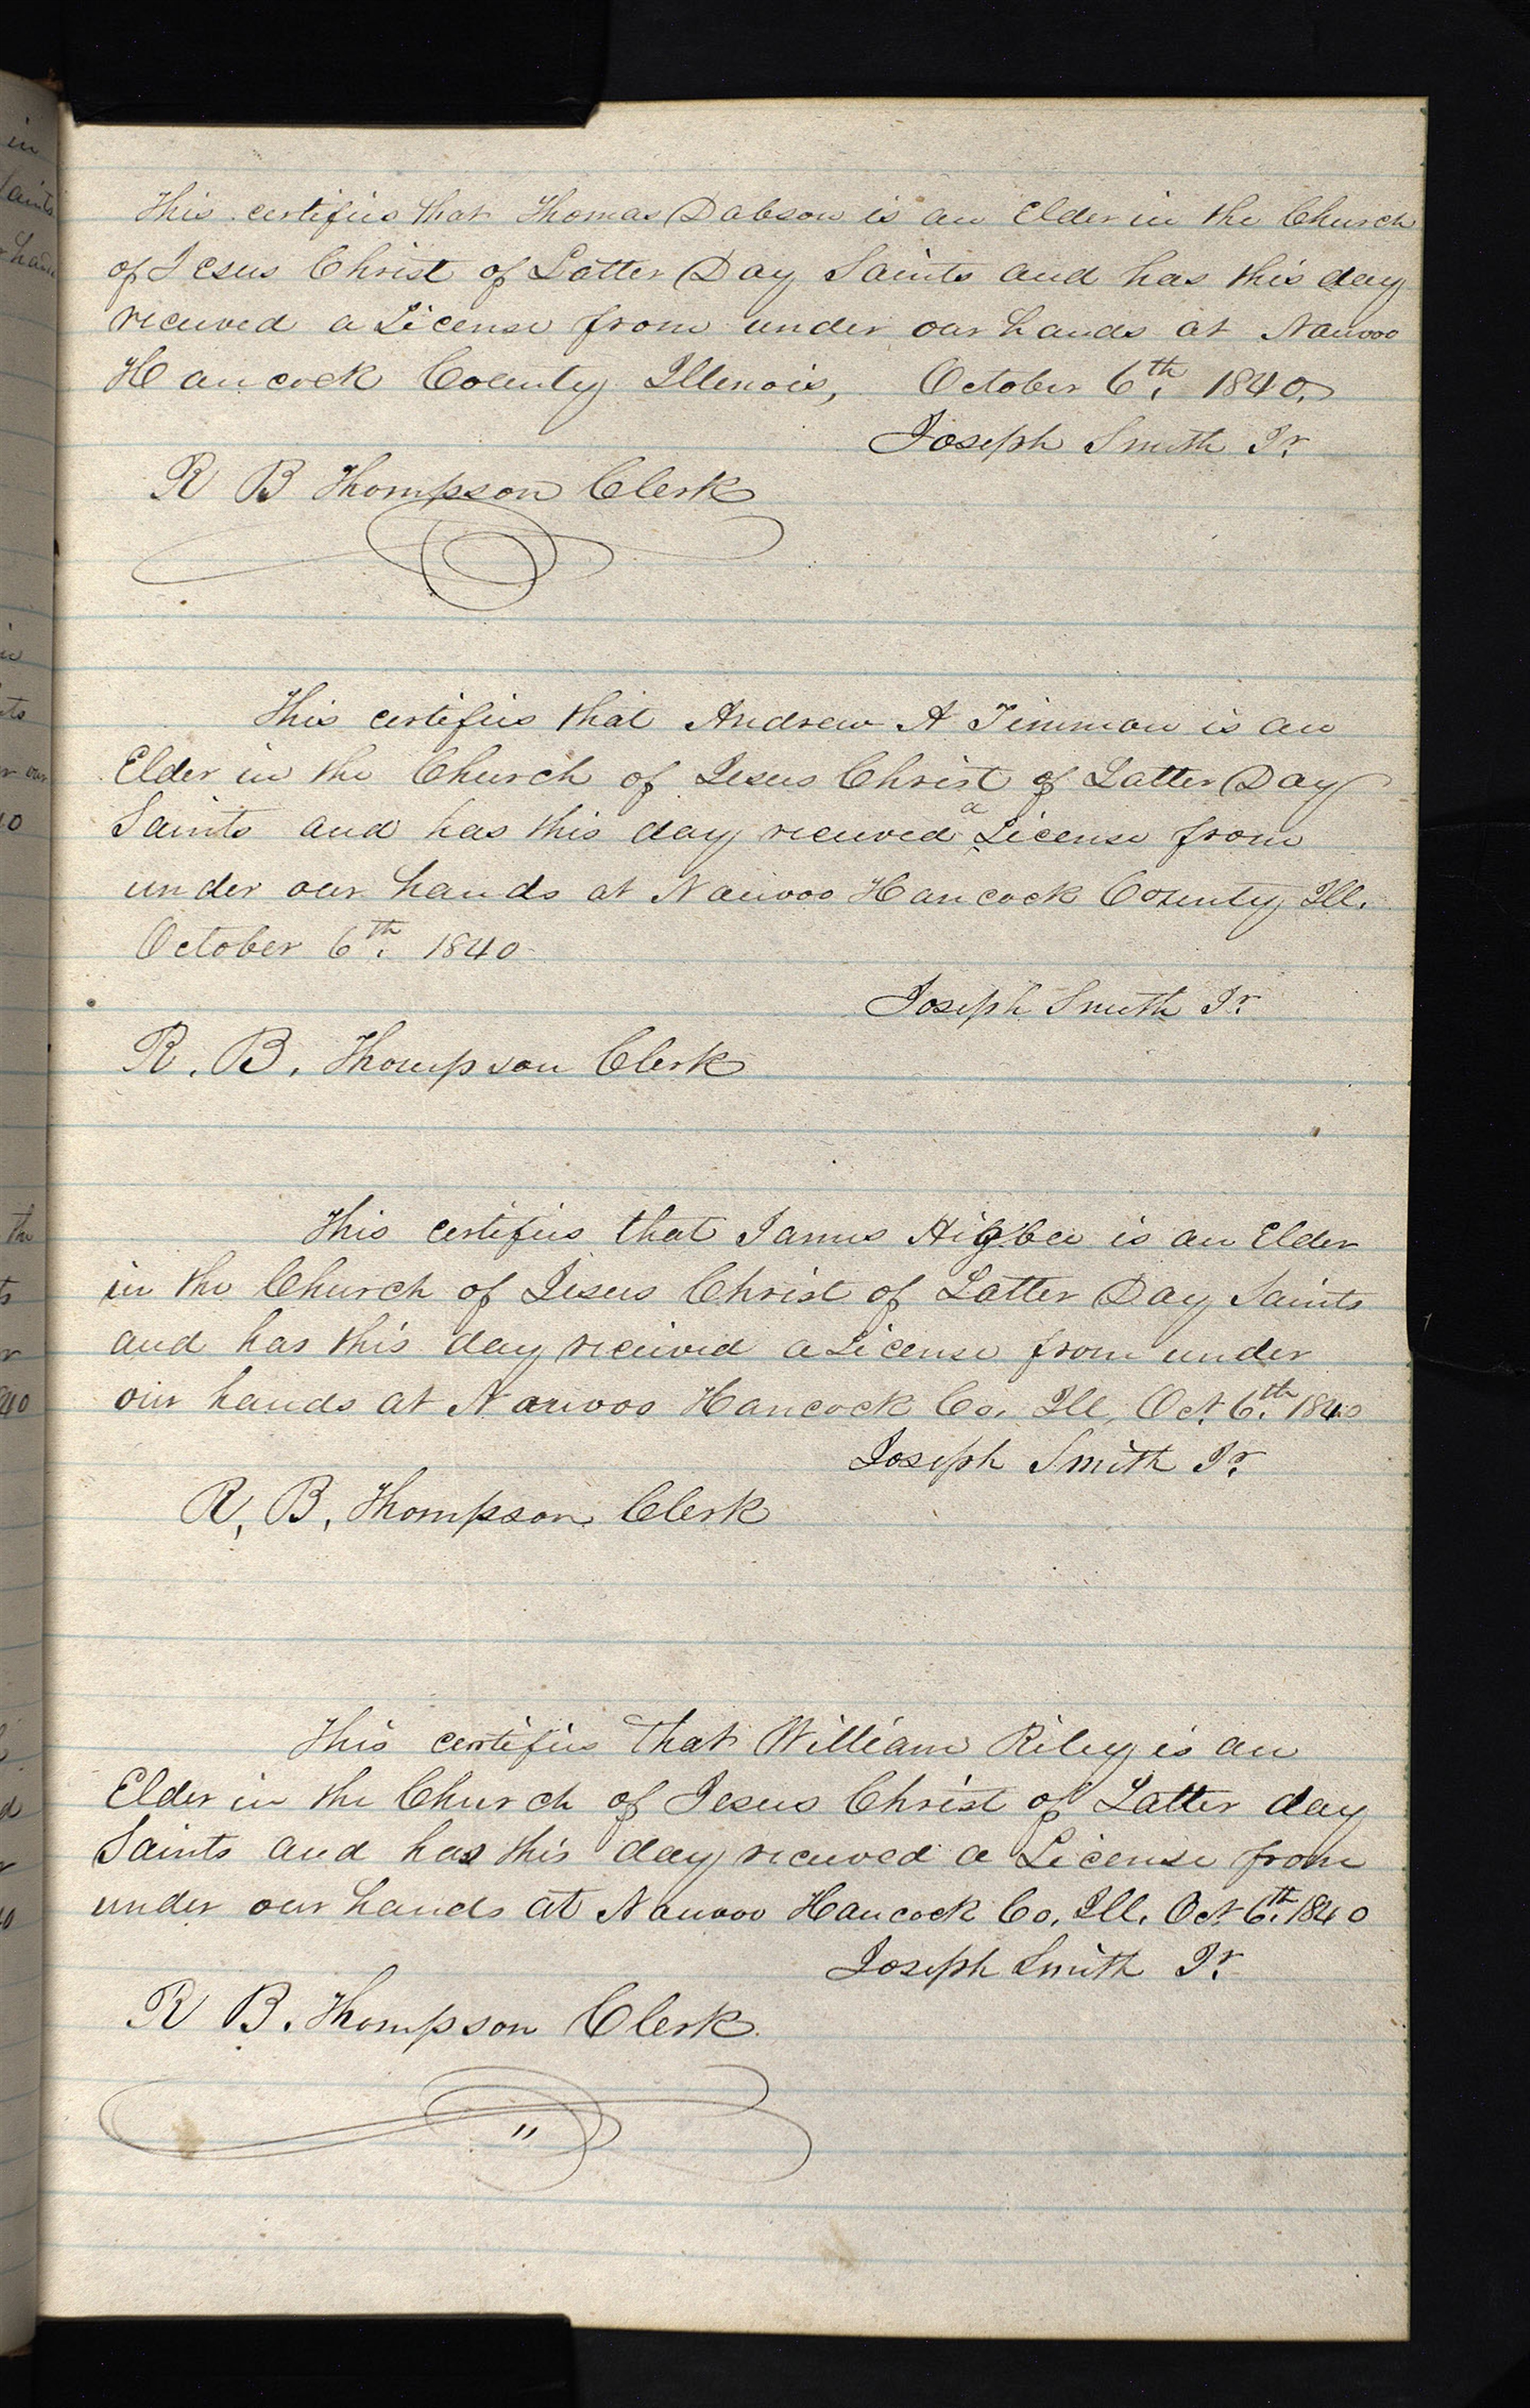 This certifies that Thomas Dobson is an Elder in the Church
of Jesus Christ of Latter Day Saints and has this day
received a License from under our hands at Nauvoo
Hancock County Illinois, October 6th. 1840.
Joseph Smith Jr.
R B Thompson Clerk
This certifies that Andrew A Timmon is an
Elder in the Church of Jesus Christ of Latter Day
Saints and has this day received a License from
under our hands at Nauvoo Hancock County Ill.
October 6th. 1840
Joseph Smith Jr.
R. B. Thompson Clerk
This certifies that James Higbee is an Elder
in the Church of Jesus Christ of Latter Day Saints
and has this day received a License from under
our hands at Nauvoo Hancock Co. Ill, Oct. 6th. 1840
Joseph Smith Jr.
R, B, Thompson Clerk
This certifies that William Riley is an
Elder in the Church of Jesus Christ of Latter day
Saints and has this day received a License from
under our hands at Nauvoo Hancock Co. Ill. Oct 6th. 1840
Joseph Smith Jr.
R B. Thompson Clerk.